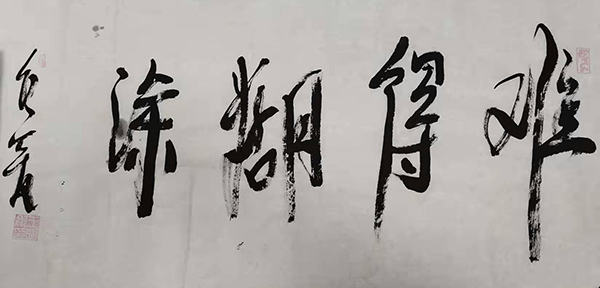 难得糊涂